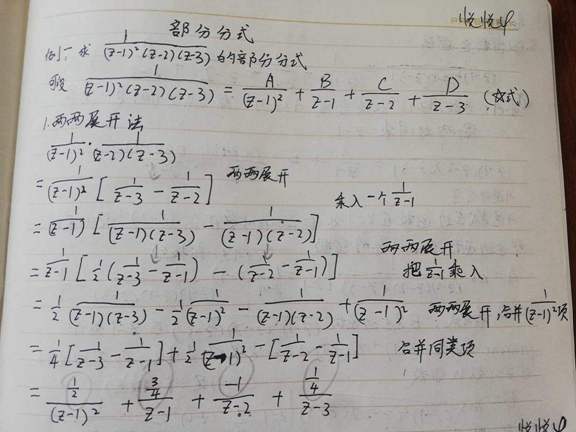 悦悦ψ
部分分式
例一. 求 1/((z-1)²(z-2)(z-3)) 的部分分式
可设 1/((z-1)²(z-2)(z-3)) = A/(z-1)² + B/(z-1) + C/(z-2) + D/(z-3)
1.两两展开法
1/(z-1)² · 1/((z-2)(z-3))
= 1/(z-1)² [1/(z-3) - 1/(z-2)] 两两展开
乘入一个 1/(z-1)
= 1/(z-1) [1/((z-1)(z-3)) - 1/((z-1)(z-2))]
两两展开
= 1/(z-1) [½(1/(z-3) - 1/(z-1)) - (1/(z-2) - 1/(z-1))] 把 1/(z-1) 乘入
= ½ 1/((z-1)(z-3)) - ½ 1/(z-1)² - 1/((z-1)(z-2)) + 1/(z-1)² 两两展开,合并 1/(z-1)² 项
= ¼ [1/(z-3) - 1/(z-1)] + ½ 1/(z-1)² - [1/(z-2) - 1/(z-1)] 合并同类项
= ½/(z-1)² + ¾/(z-1) + -1/(z-2) + ¼/(z-3)
悦悦ψ